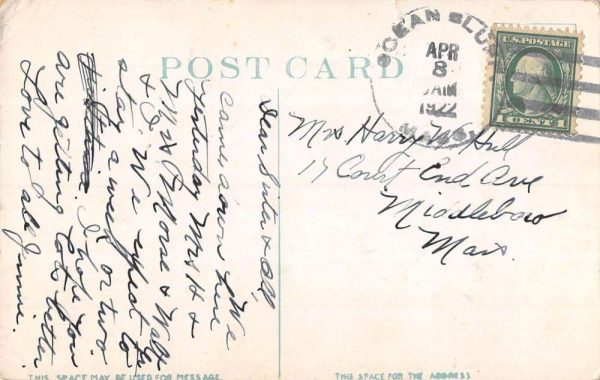 POST CARD
OCEAN BLUF
APR
8
AM
1922
MASS
U.S. POSTAGE
1 CENT 1
Mrs Harry W Hull
17 Court End Ave
Middleboro
Mass.
Dear Sister & All,
We
came down here
yesterday Mrs H &
Mrs P Morse & Walter
& I. We expect to
stay a week or two
I hope you
are getting lots better
Love to all Jennie.
THIS SPACE MAY BE USED FOR MESSAGE.
THIS SPACE FOR THE ADDRESS